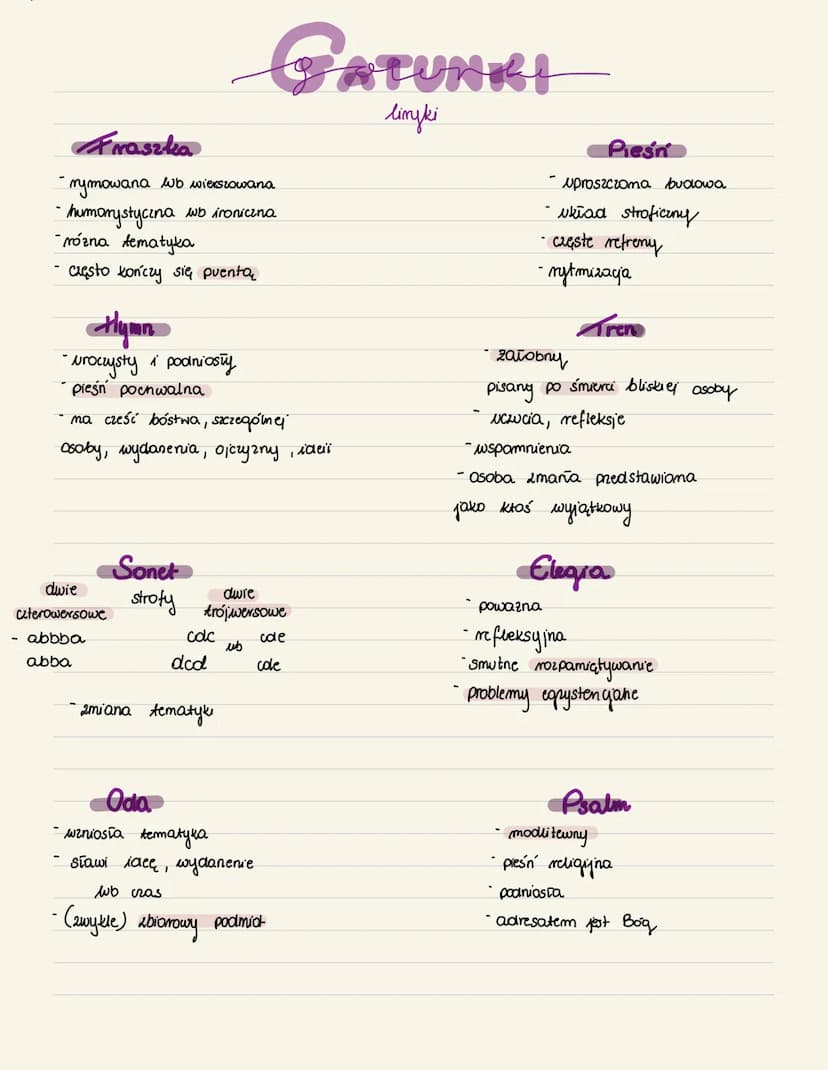 GATUNKI
gatunki
liryki
Fraszka
- rymowana lub wierszowana
- humorystyczna lub ironiczna
- różna tematyka
- często kończy się puentą
Pieśń
- uproszczona budowa
- układ stroficzny
- częste refreny
- rytmizacja
Hymn
- uroczysty i podniosły
- pieśń pochwalna
- na cześć bóstwa, szczególnej
osoby, wydarzenia, ojczyzny, idei
Tren
- żałobny
pisany po śmierci bliskiej osoby
- uczucia, refleksje
- wspomnienia
- osoba zmarła przedstawiona
jako ktoś wyjątkowy
Sonet
dwie strofy dwie
czterowersowe trójwersowe
- abbba cdc lub cde
abba dcd cde
- zmiana tematyki
Elegia
- poważna
- refleksyjna
- smutne rozpamiętywanie
- problemy egzystencjalne
Oda
- wzniosła tematyka
- sławi ideę, wydarzenie
lub czas
- (zwykle) zbiorowy podmiot
Psalm
- modlitewny
- pieśń religijna
- podniosła
- adresatem jest Bóg